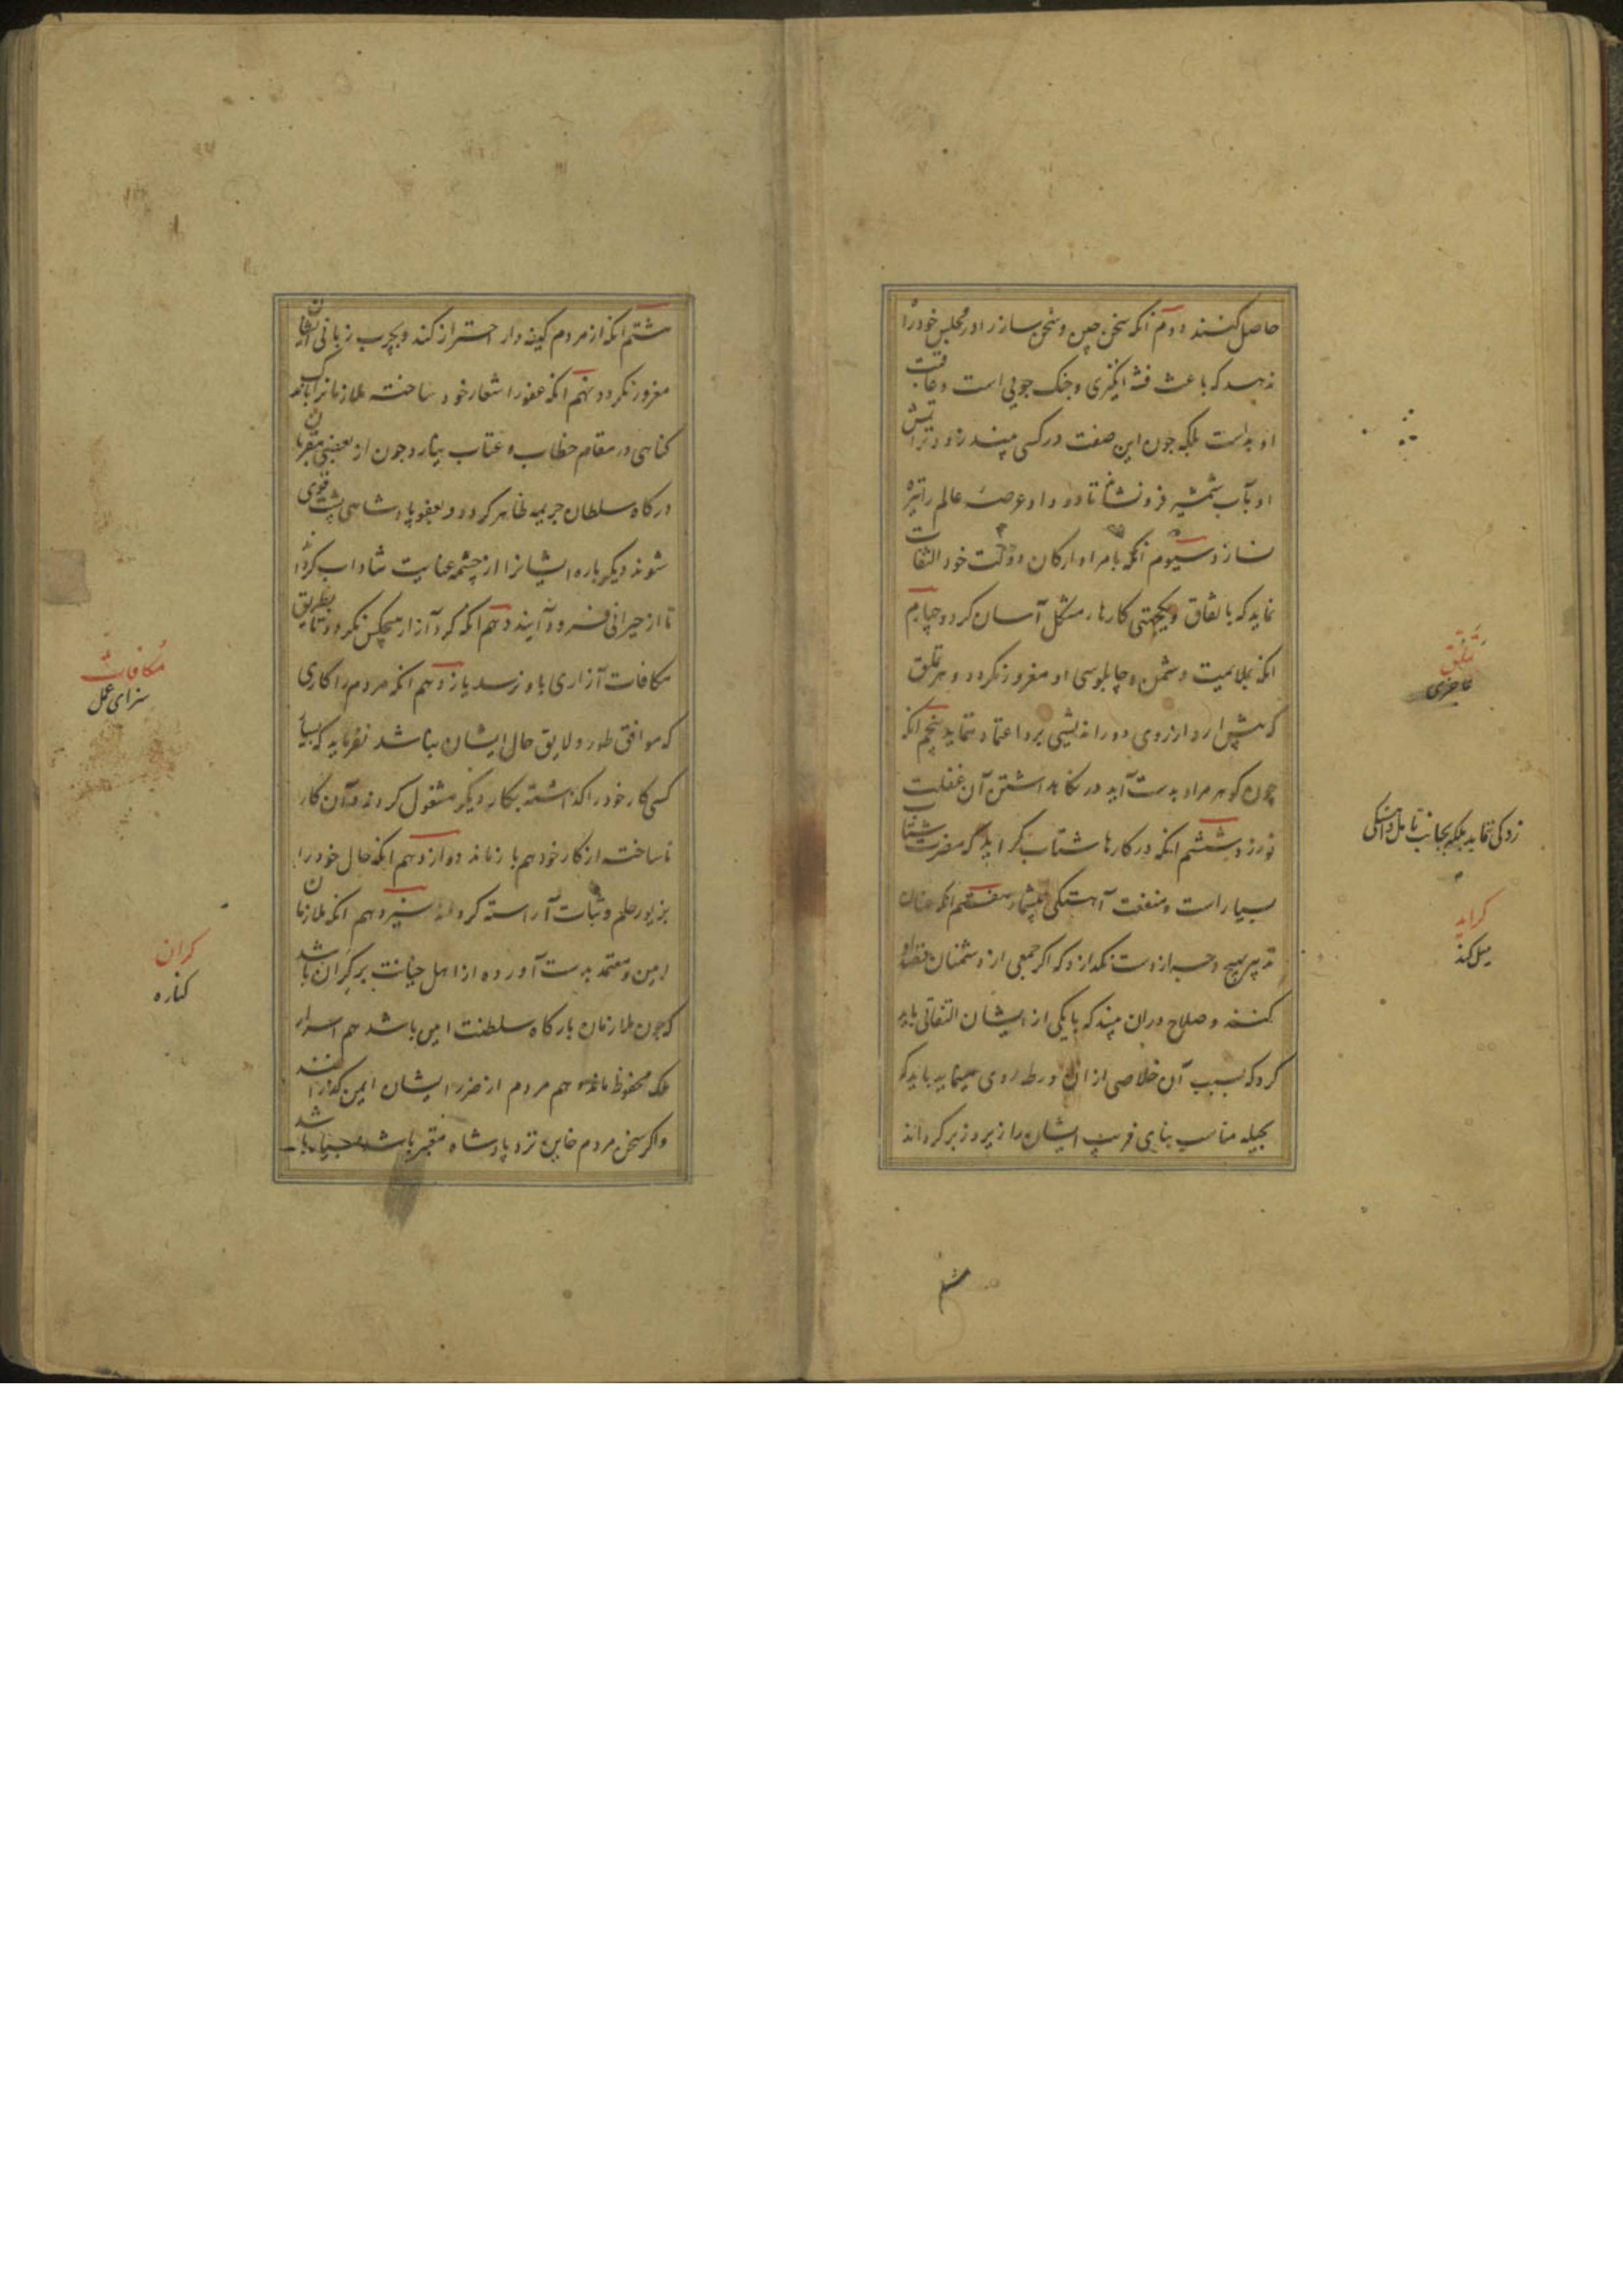 حاصل کنند دوم آنکه سخن چین و سخن ساز را در مجلس خود راه
ندهد که باعث فتنه انکیزی و جنک جویی است و عاقبت
او بداست بلکه چون این صفت در کسی بیند زود تر آتش
او بآب شمشیر فرو نشاند تا دود او عرصه عالم را تیره
نسازد سیوم آنکه با مرا و ارکان دولت خود التفات
نماید که باتفاق و یکجهتی کارهاء مشکل آسان کردد چهارم
انکه بملایمیت دشمن و چاپلوسی او مغرور نکردد و هر تملق
که پیش ارد از روی دور اندیشی برو اعتماد ننماید پنجم انکه
چون کوهر مراد بدست آید در نکاه داشتن آن غفلت
نورزد ششم انکه در کارها شتاب نکراید که مضرت شتاب
بسیار است و منفعت آهستکی بیشمار هفتم انکه عنان
تدبیر بهیچ وجه از دست نکدارد که اکر جمعی از دشمنان قصد او
کنند و صلاح دران بیند که با یکی از ایشان التفاتی باید
کرد که بسبب آن خلاصی از ان ورطه روی مینماید باید که
بحیله مناسب بنای فریب ایشان را زیر و زبر کرداند
تملق
عاجزی
زدکی ننماید بلکه بجانب تامل و اهستکی
کراید
میل کند
هشتم انکه از مردم کینه دار احتراز کند و بچرب زبانی ایشان
مغرور نکردد نهم انکه عفو را شعار خود ساخته ملازمانرا باندک
کناهی در مقام خطاب و عتاب نیارد چون از بعضی مقربان
درکاه سلطان جریمه ظاهر کردد و بعفو پادشاهی پشت قوی
شوند دیکر باره ایشانرا از چشمه عنایت شاداب کرداند
تا از حیرانی فرود آیند دهم انکه کرد آزار هیچکس نکردد تا بطریق
مکافات آزاری باو نرسد یازدهم انکه مردم را کاری
که موافق طور و لایق حال ایشان نباشد نفرماید که بسیار
کسی کار خود را کذاشته بکار دیکر مشغول کردند و آن کار
ناساخته از کار خود هم باز ماند دوازدهم انکه حال خود را
بزیور حلم و ثبات آراسته کرداند سیزدهم انکه ملازمان
امین و معتمد بدست آورده از اهل خیانت بر کران باشد
که چون ملازمان بارکاه سلطنت امین باشد هم اسرار
ملک محفوظ ماند و هم مردم از ضرر ایشان ایمن کذرانند
و اکر سخن مردم خاین نزد پادشاه معتبر باشد
مکافات
سزای عمل
کران
کناره